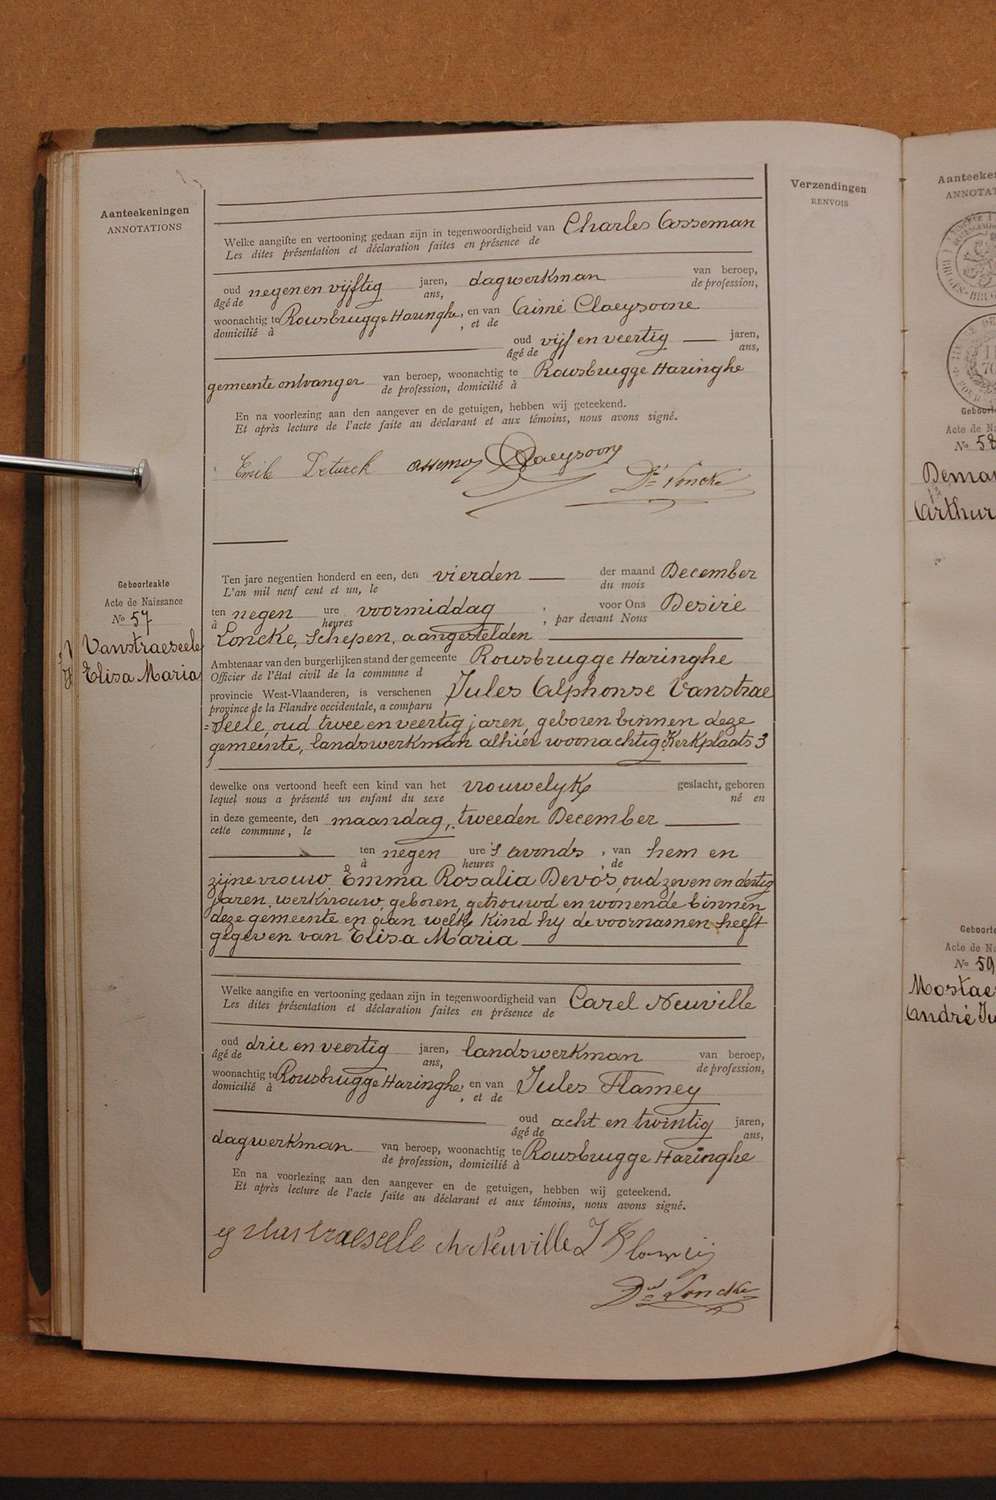 Aanteekeningen
ANNOTATIONS
Verzendingen
RENVOIS
Welke aangifte en vertooning gedaan zijn in tegenwoordigheid van Charles Asseman
Les dites présentation et déclaration faites en présence de
oud negen en vijftig jaren, dagwerkman van beroep,
âgé de ans, de profession,
woonachtig te Rousbrugge Haringhe, en van Aimé Claeysoone
domicilié à , et de
oud vijf en veertig jaren,
âgé de ans,
gemeente ontvanger van beroep, woonachtig te Rousbrugge Haringhe
de profession, domicilié à
En na voorlezing aan den aangever en de getuigen, hebben wij geteekend.
Et après lecture de l'acte faite au déclarant et aux témoins, nous avons signé.
Emile Deturck Asseman Claeysoone
Dré Loncke
Geboorteakte
Acte de Naissance
No 57
Vanstraeseele
Elisa Maria
Ten jare negentien honderd en een, den vierden der maand December
L'an mil neuf cent et un, le du mois
ten negen ure voormiddag , voor Ons Desiré
à heures , par devant Nous
Loncke, Schepen, aangestelden
Ambtenaar van den burgerlijken stand der gemeente Rousbrugge Haringhe
Officier de l'état civil de la commune d
provincie West-Vlaanderen, is verschenen Jules Alphonse Vanstrae
province de la Flandre occidentale, a comparu
=Seele, oud twee en veertig jaren, geboren binnen deze
gemeente, landswerkman alhier woonachtig Kerkplaats 3
dewelke ons vertoond heeft een kind van het vrouwelyk geslacht, geboren
lequel nous a présenté un enfant du sexe né en
in deze gemeente, den maandag, tweeden December
cette commune, le
ten negen ure 's avonds , van hem en
à heures , de
zijne vrouw Emma Rosalia Devos, oud zeven en dertig
jaren, werkvrouw, geboren, getrouwd en wonende binnen
deze gemeente en aan welk kind hy de voornamen heeft
gegeven van Elisa Maria
Welke aangifte en vertooning gedaan zijn in tegenwoordigheid van Carel Neuville
Les dites présentation et déclaration faites en présence de
oud drie en veertig jaren, landswerkman van beroep,
âgé de ans, de profession,
woonachtig te Rousbrugge Haringhe, en van Jules Flamey
domicilié à , et de
oud acht en twintig jaren,
âgé de ans,
dagwerkman van beroep, woonachtig te Rousbrugge Haringhe
de profession, domicilié à
En na voorlezing aan den aangever en de getuigen, hebben wij geteekend.
Et après lecture de l'acte faite au déclarant et aux témoins, nous avons signé.
Vanstraeseele ch Neuville J Flamey
Dré Loncke
Aanteeken
ANNOTAT
Geboorte
Acte de Na
No 58
Demar
Arthur
Geboorte
Acte de Na
No 59
Mostae
André Ju